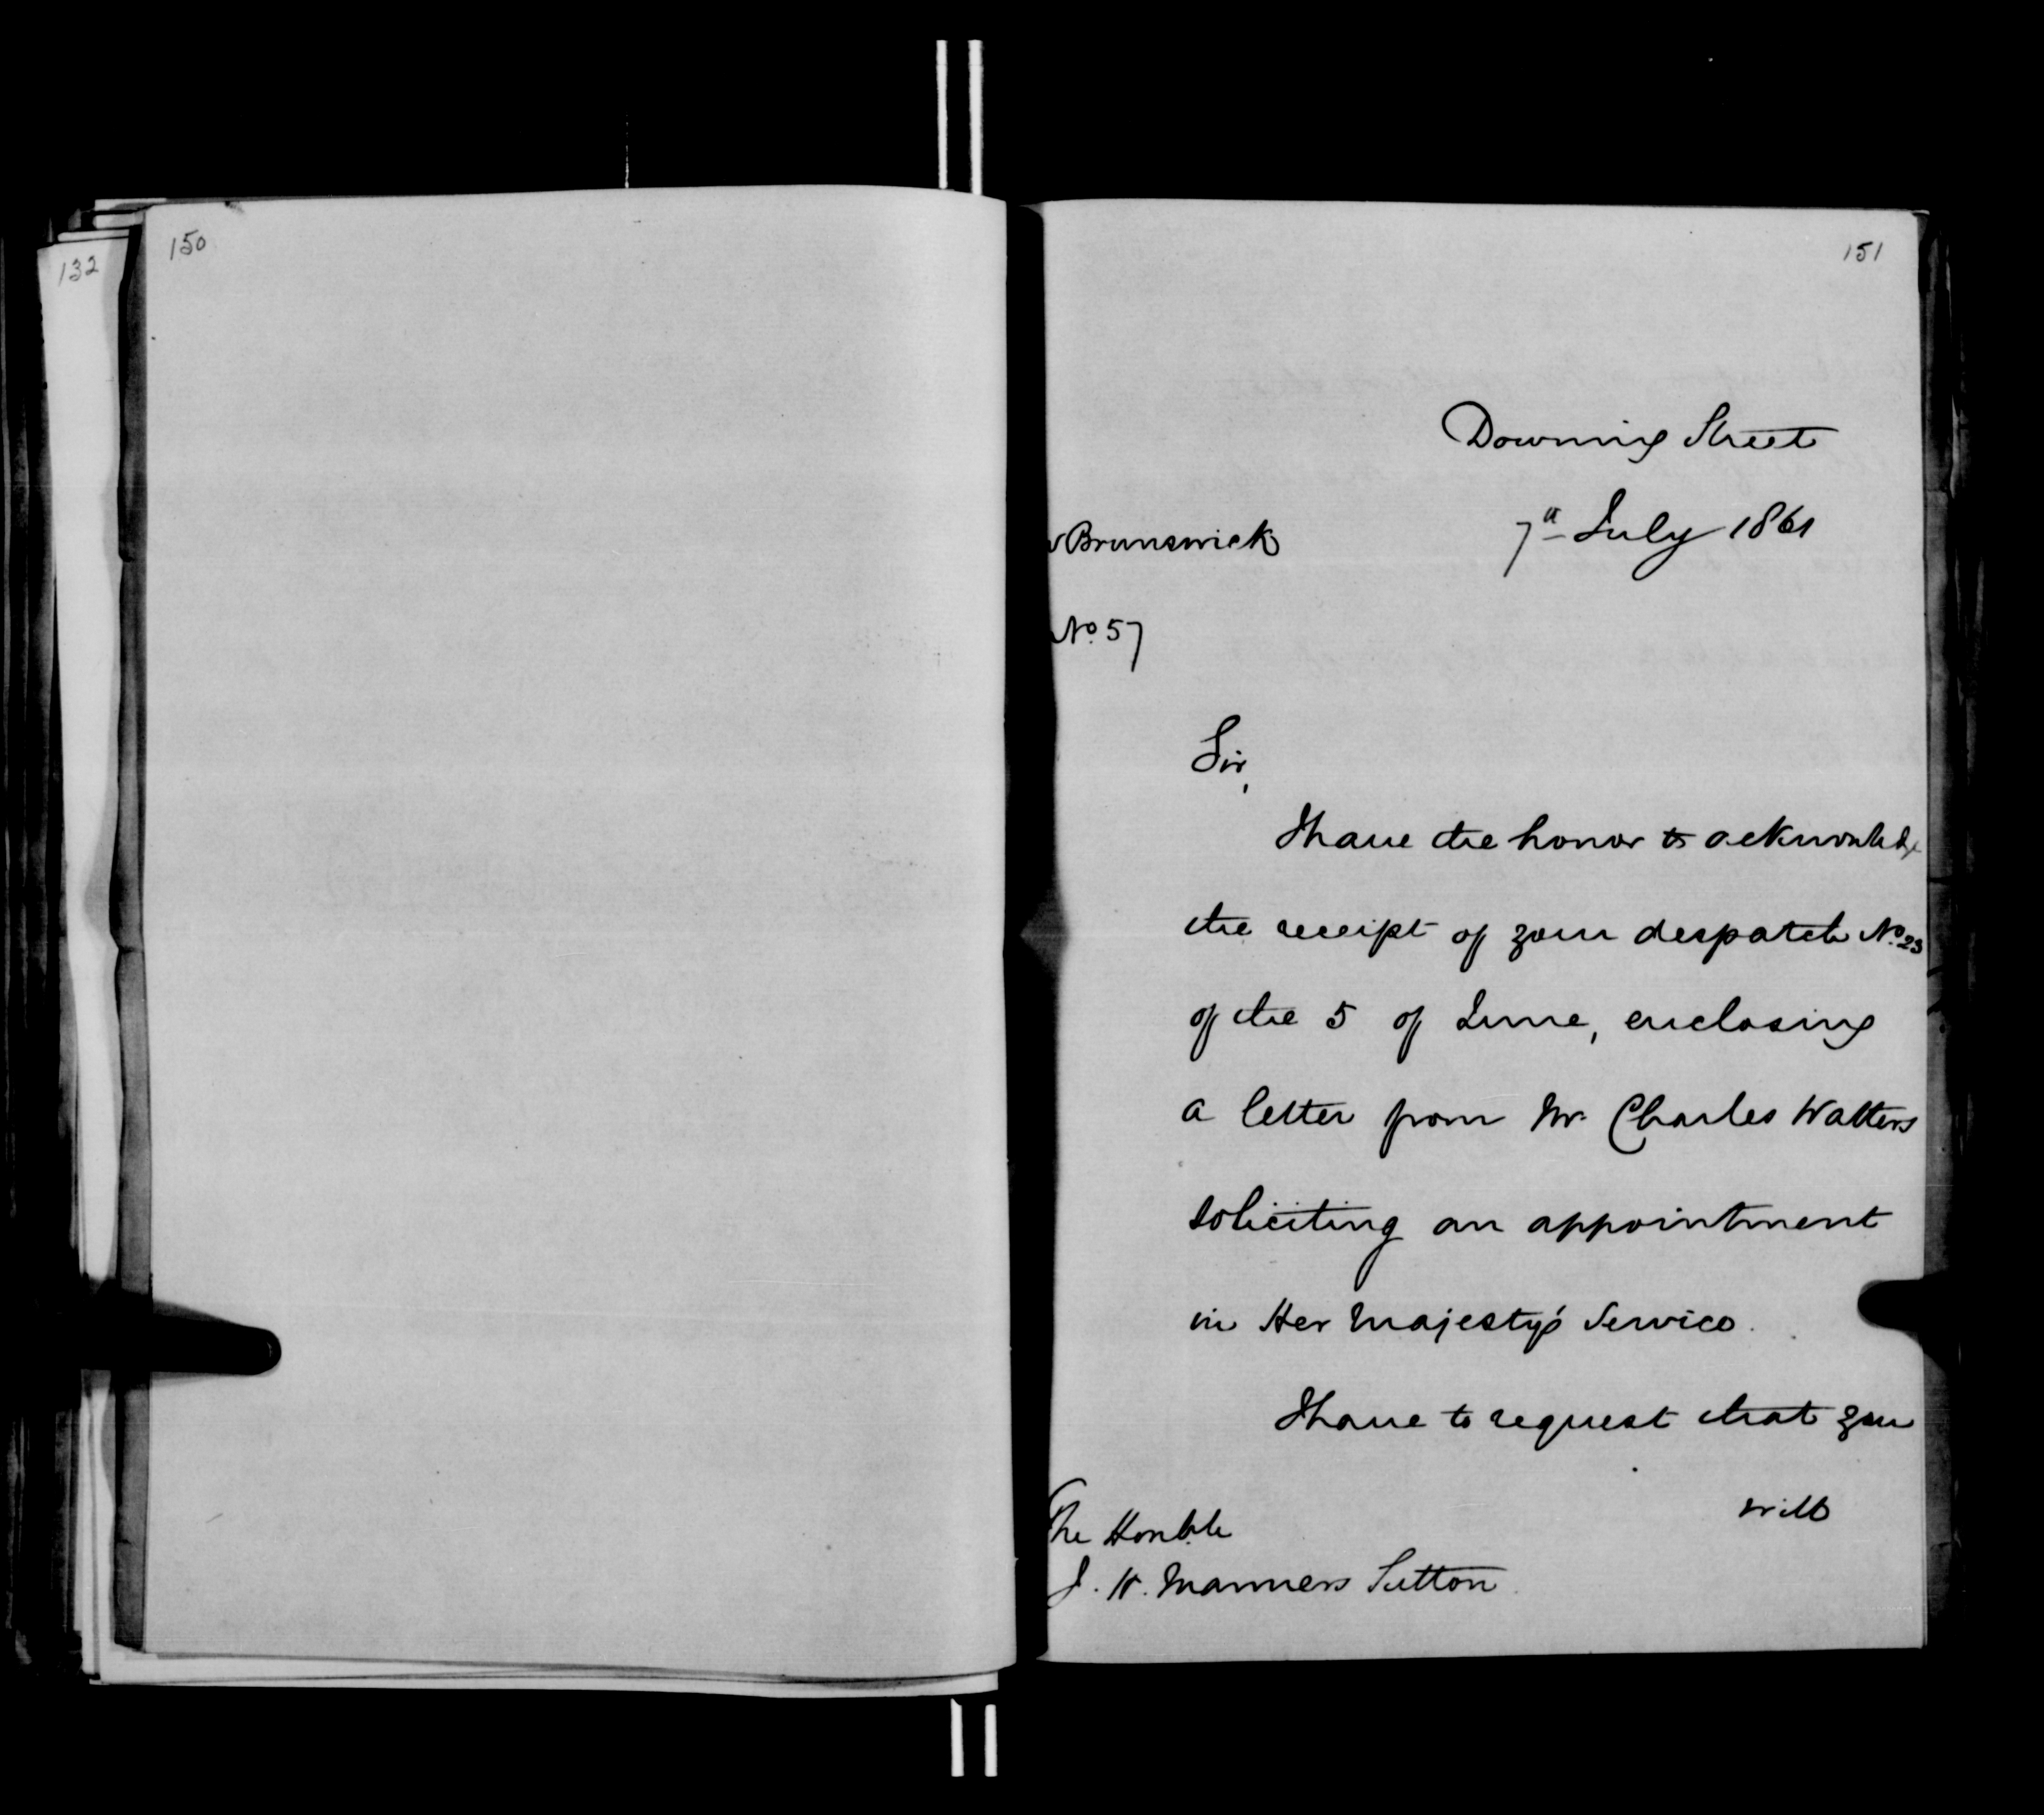 132
150
151
Downing Street
7th July 1861
Brunswick
No. 57
Sir,
I have the honor to acknowledge
the receipt of your despatch No. 23
of the 5 of June, enclosing
a letter from Mr. Charles Watters
soliciting an appointment
in Her Majesty's Service.
I have to request that you
will
The Honble
J. H. Manners Sutton